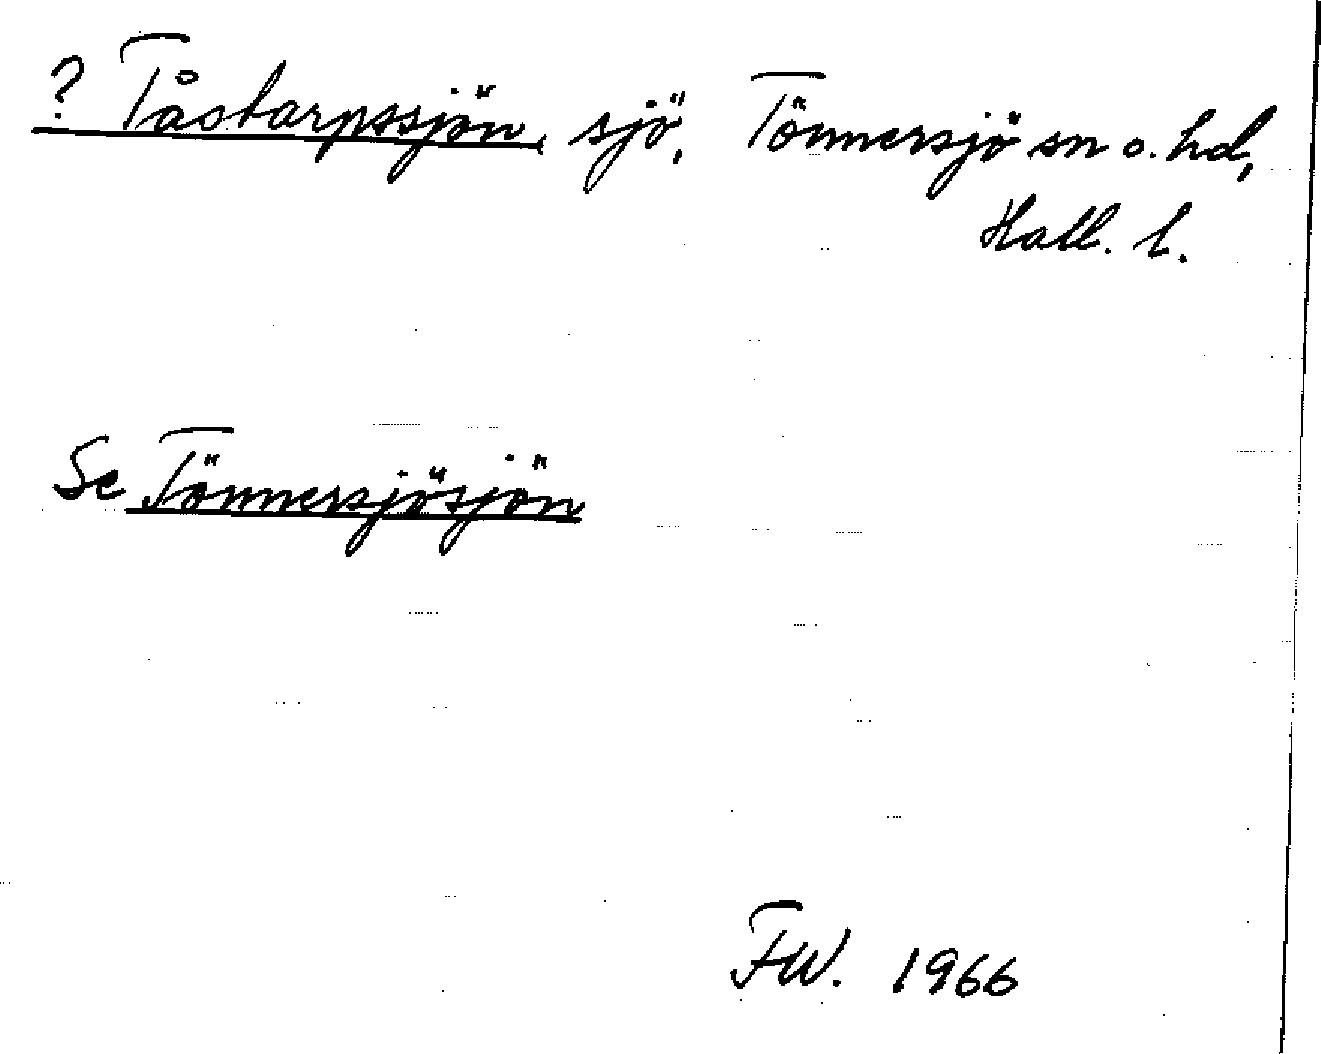 ? Tåstarpssjön, sjö, Tönnersjö sn o. hd,
Hall. l.
Se Tönnersjösjön
FW. 1966